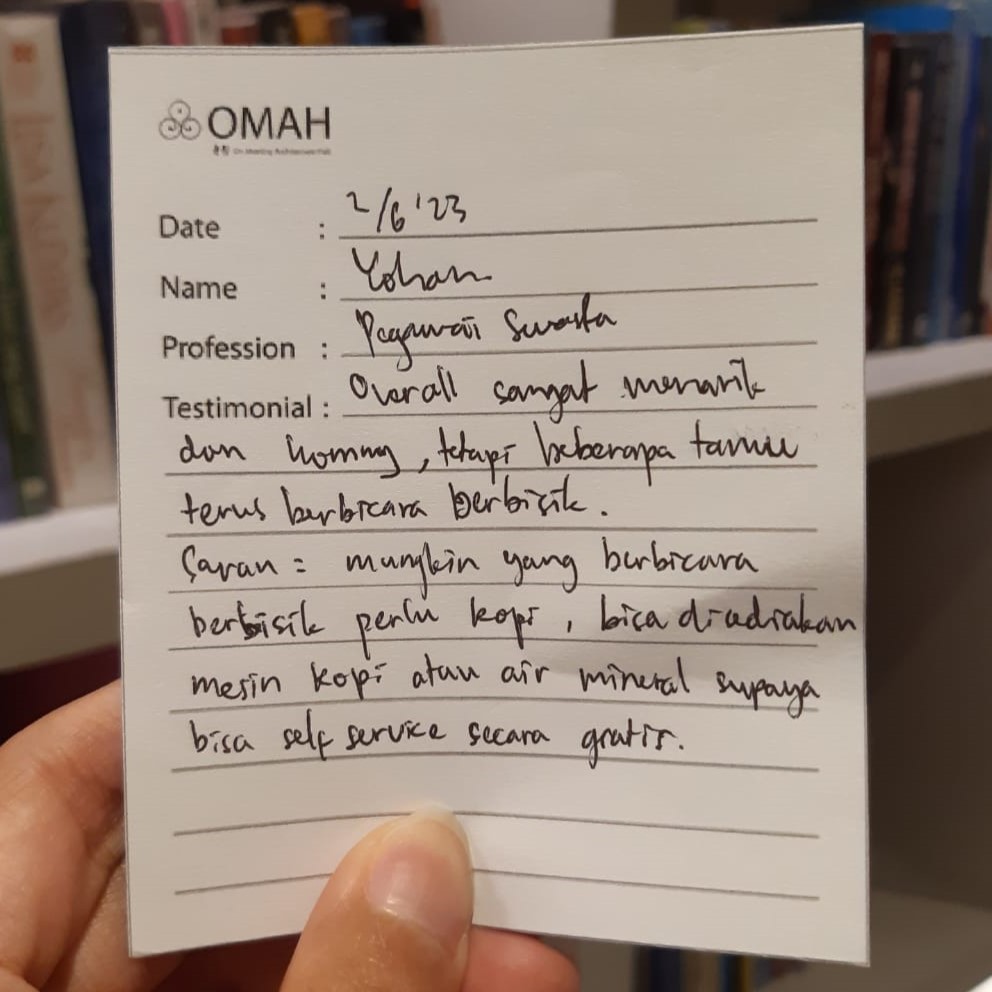 OMAH
Date : 2/6 '23
Name : Yohan
Profession : Pegawai Swasta
Testimonial : Overall sangat menarik
dan hommy, tetapi beberapa tamu
terus berbicara berbisik.
Saran = mungkin yang berbicara
berbisik perlu kopi, bisa diadiakan
mesin kopi atau air mineral supaya
bisa self service secara gratis.